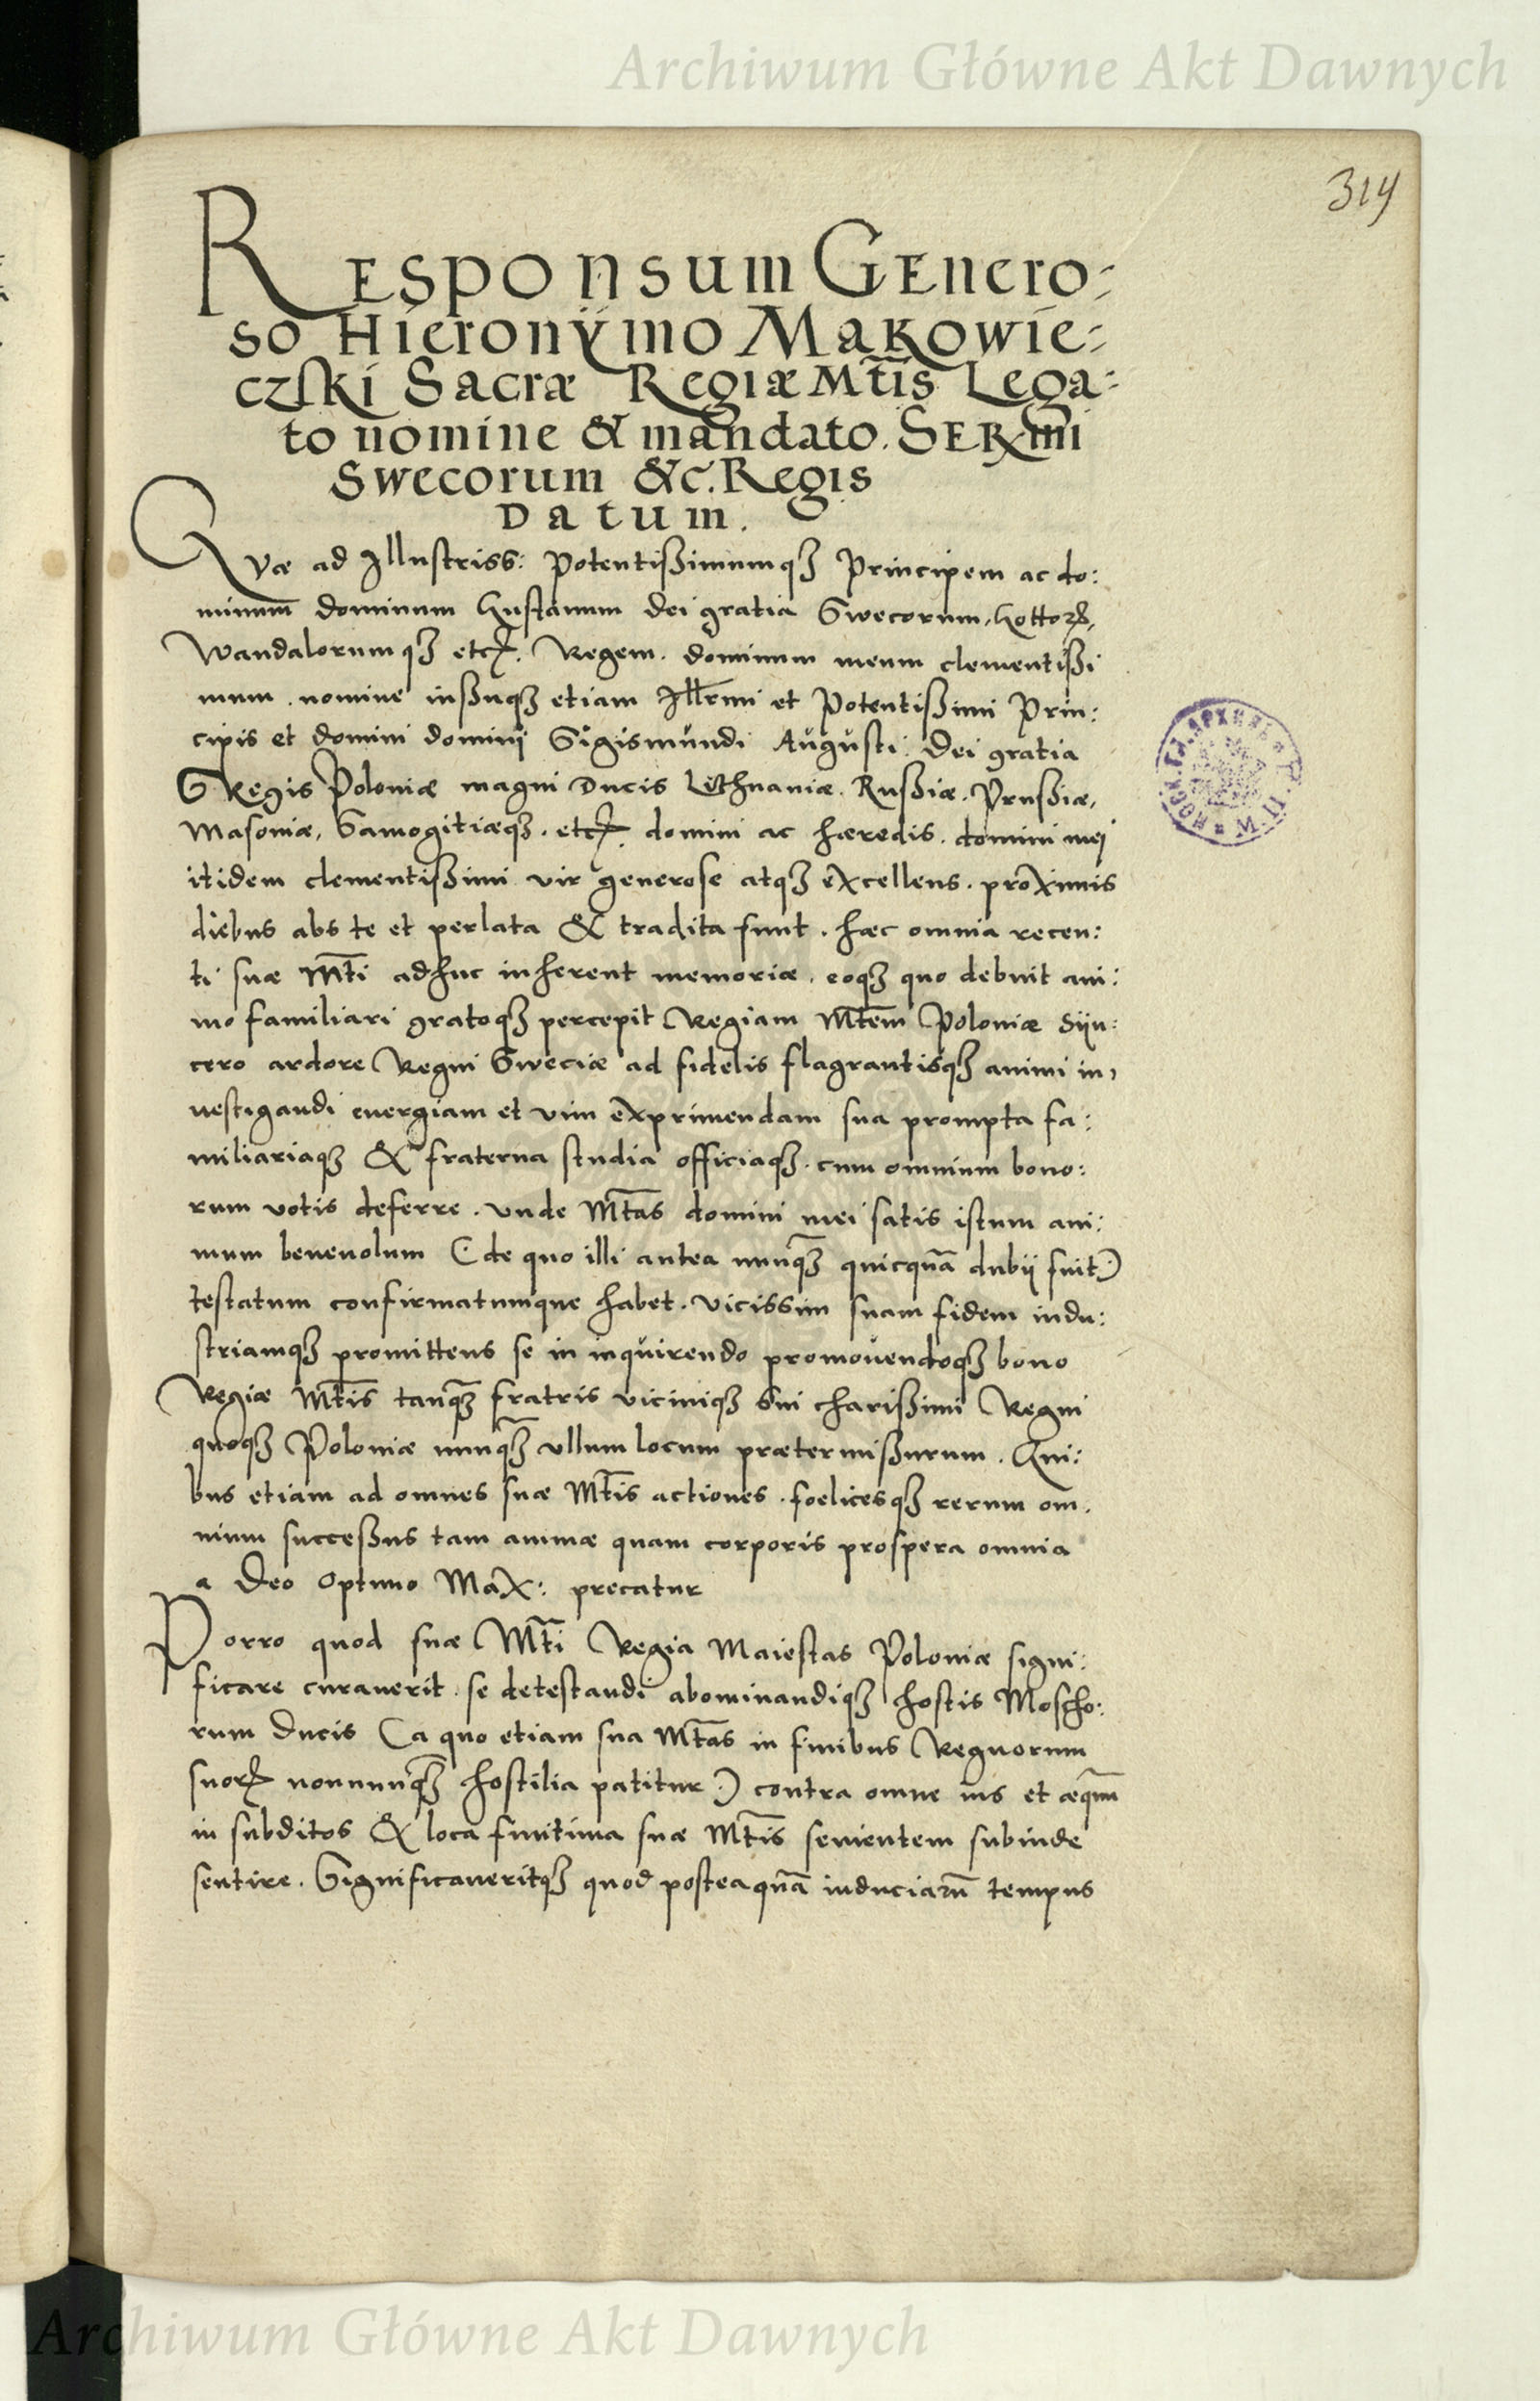 Archiwum Główne Akt Dawnych
314
Responsum Genero:
so Hieronÿmo Makowie:
czski Sacræ Regiæ Mt̃is Lega:
to nomine & mandato. Serm̃i
Swecorum &c̃. Regis
Datum.
Qvæ ad Illustriss: Potentißimumqꝫ Principem ac do:
minum dominum Gustauum dei gratia Swecorum, Gottorꝝ,
Wandalorumqꝫ etcꝭ. Regem. dominum meum clementißi
mum. nomine iußuqꝫ etiam Illr̃mi et Potentißimi Prin:
cipis et domini domini Sigismundi Augusti. Dei gratia
Regis Poloniæ magni Ducis Lithuaniæ. Rußiæ. Prußiæ,
Masoniæ, Samogitiæqꝫ. etcꝭ. domini ac hæredis. domini mei
itidem clementißimi vir generose atqꝫ excellens. proximis
diebus abs te et perlata & tradita sunt. hæc omnia recen:
ti suæ Mt̃i adhuc inherent memoriæ. eoqꝫ quo debuit ani:
mo familiari gratoqꝫ percepit Regiam Mt̃em Poloniæ syn:
cero ardore Regni Sweciæ ad fidelis flagrantisqꝫ animi in,
uestigandi energiam et vim exprimendam sua prompta fa:
miliariaqꝫ & fraterna studia officiaqꝫ. cum omnium bono:
rum votis deferre. vnde Mt̃as domini mei satis istum ani:
mum beneuolum (: de quo illi antea nunqꝫ̃ quicquã dubij fuit :)
testatum confirmatumque habet. vicissim suam fidem indu:
striamqꝫ promittens se in inquirendo promouendoqꝫ bono
Regiæ Mt̃is tanqꝫ̃ fratris viciniqꝫ sui charißimi Regni
quoqꝫ Poloniæ nunqꝫ̃ vllum locum prætermißurum. Qui:
bus etiam ad omnes suæ Mt̃is actiones. foelicesqꝫ rerum om.
nium succeßus tam animæ quam corporis prospera omnia
a Deo Optimo Max: precatur
Porro quod suæ Mt̃i Regia Maiestas Poloniæ signi:
ficare curauerit. se detestandi abominandiqꝫ hostis Moscho:
rum Ducis (a quo etiam sua Mt̃as in finibus Regnorum
suorꝝ nonnunqꝫ̃ hostilia patitur :) contra omne ius et æquũ
in subditos & loca finitima suæ Mt̃is seuientem subinde
sentire. Significaueritqꝫ quod posteaquã induciarũ tempus
Archiwum Główne Akt Dawnych